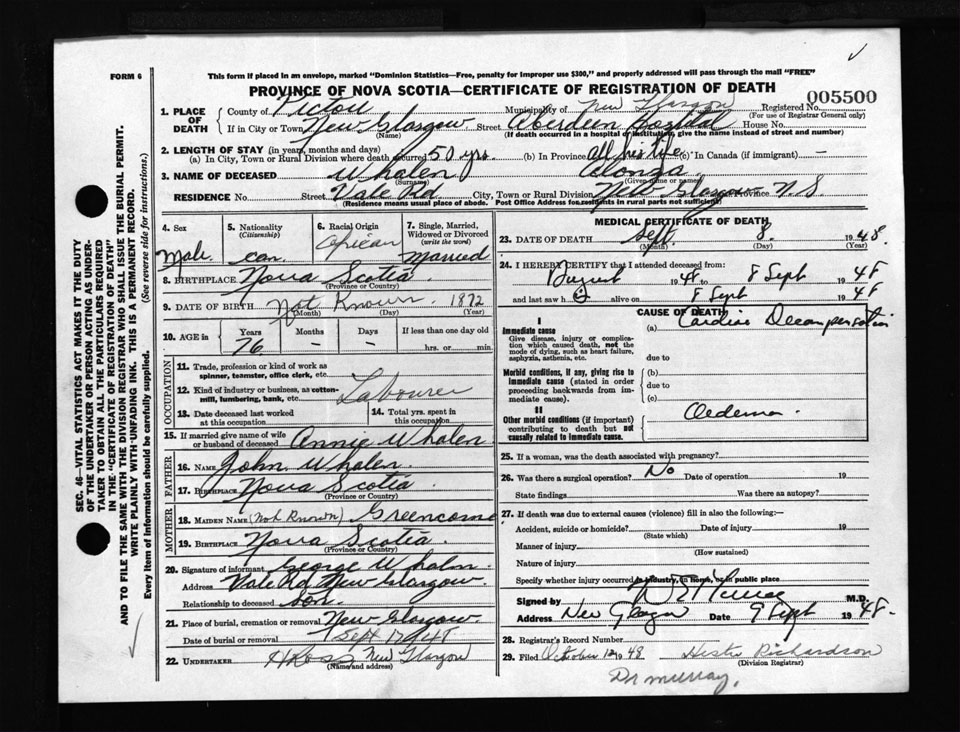 FORM 6
This form if placed in an envelope, marked "Dominion Statistics—Free, penalty for improper use $300," and properly addressed will pass through the mail "FREE"
PROVINCE OF NOVA SCOTIA—CERTIFICATE OF REGISTRATION OF DEATH
005500
1. PLACE OF DEATH
County of Pictou Municipality of New Glasgow Registered No.
(For use of Registrar General only)
If in City or Town New Glasgow Street Aberdeen Hospital House No.
(Name) (If death occurred in a hospital or institution, give the name instead of street and number)
2. LENGTH OF STAY (in years, months and days)
(a) In City, Town or Rural Division where death occurred 50 yrs. (b) In Province all his life (c) In Canada (if immigrant) —
3. NAME OF DECEASED Whalen Alonza
(Surname) (Given name or names)
RESIDENCE No. Street Vale Rd City, Town or Rural Division New Glasgow Province N.S.
(Residence means usual place of abode. Post Office Address for residents in rural parts not sufficient)
4. Sex Male
5. Nationality (Citizenship) Can.
6. Racial Origin African
7. Single, Married, Widowed or Divorced (write the word) Married
8. BIRTHPLACE Nova Scotia
(Province or Country)
9. DATE OF BIRTH Not Known 1872
(Month) (Day) (Year)
10. AGE in Years Months Days If less than one day old
76 – – hrs. or min.
OCCUPATION
11. Trade, profession or kind of work as spinner, teamster, office clerk, etc.
12. Kind of industry or business, as cotton-mill, lumbering, bank, etc. Labourer
13. Date deceased last worked at this occupation
14. Total yrs. spent in this occupation
15. If married give name of wife or husband of deceased Annie Whalen
FATHER
16. NAME John Whalen
17. BIRTHPLACE Nova Scotia
(Province or Country)
MOTHER
18. MAIDEN NAME (Not Known) Greencome
19. BIRTHPLACE Nova Scotia
(Province or Country)
20. Signature of informant George Whalen
Address Vale Rd New Glasgow
Relationship to deceased Son
21. Place of burial, cremation or removal New Glasgow
Date of burial or removal Sept 1948
22. UNDERTAKER New Glasgow
(Name and address)
MEDICAL CERTIFICATE OF DEATH
23. DATE OF DEATH Sept. 8 1948.
(Month) (Day) (Year)
24. I HEREBY CERTIFY that I attended deceased from:
August 1948 to 8 Sept 1948
and last saw h alive on 8 Sept 1948
CAUSE OF DEATH
I
Immediate cause (a) Cardiac Decompensation
Give disease, injury or complication which caused death, not the mode of dying, such as heart failure, asphyxia, asthenia, etc.
due to
Morbid conditions, if any, giving rise to immediate cause (stated in order proceeding backwards from immediate cause).
(b)
due to
(c)
II
Other morbid conditions (if important) contributing to death but not causally related to immediate cause. Oedema
25. If a woman, was the death associated with pregnancy?
26. Was there a surgical operation? No Date of operation 19
State findings Was there an autopsy?
27. If death was due to external causes (violence) fill in also the following:
Accident, suicide or homicide? Date of injury 19
(State which)
Manner of injury
(How sustained)
Nature of injury
Specify whether injury occurred in industry, in home, or in public place
Signed by Murray M.D.
Address New Glasgow Date 9 Sept 1948.
28. Registrar's Record Number
29. Filed October 1948 Hester Richardson
(Division Registrar)
Dr Murray.
SEC. 46—VITAL STATISTICS ACT MAKES IT THE DUTY
OF THE UNDERTAKER OR PERSON ACTING AS UNDER-
TAKER TO OBTAIN ALL THE PARTICULARS REQUIRED
IN THE "CERTIFICATE OF REGISTRATION OF DEATH"
AND TO FILE THE SAME WITH THE DIVISION REGISTRAR WHO SHALL ISSUE THE BURIAL PERMIT.
WRITE PLAINLY WITH UNFADING INK. THIS IS A PERMANENT RECORD.
Every item of information should be carefully supplied. (See reverse side for instructions.)